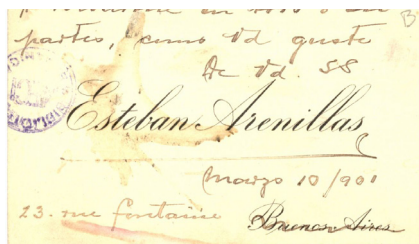 en todo o en
partes, como Vd guste
de Vd. SS
Esteban Arenillas
Marzo 10/901
23. rue fontaine Buenos Aires
B